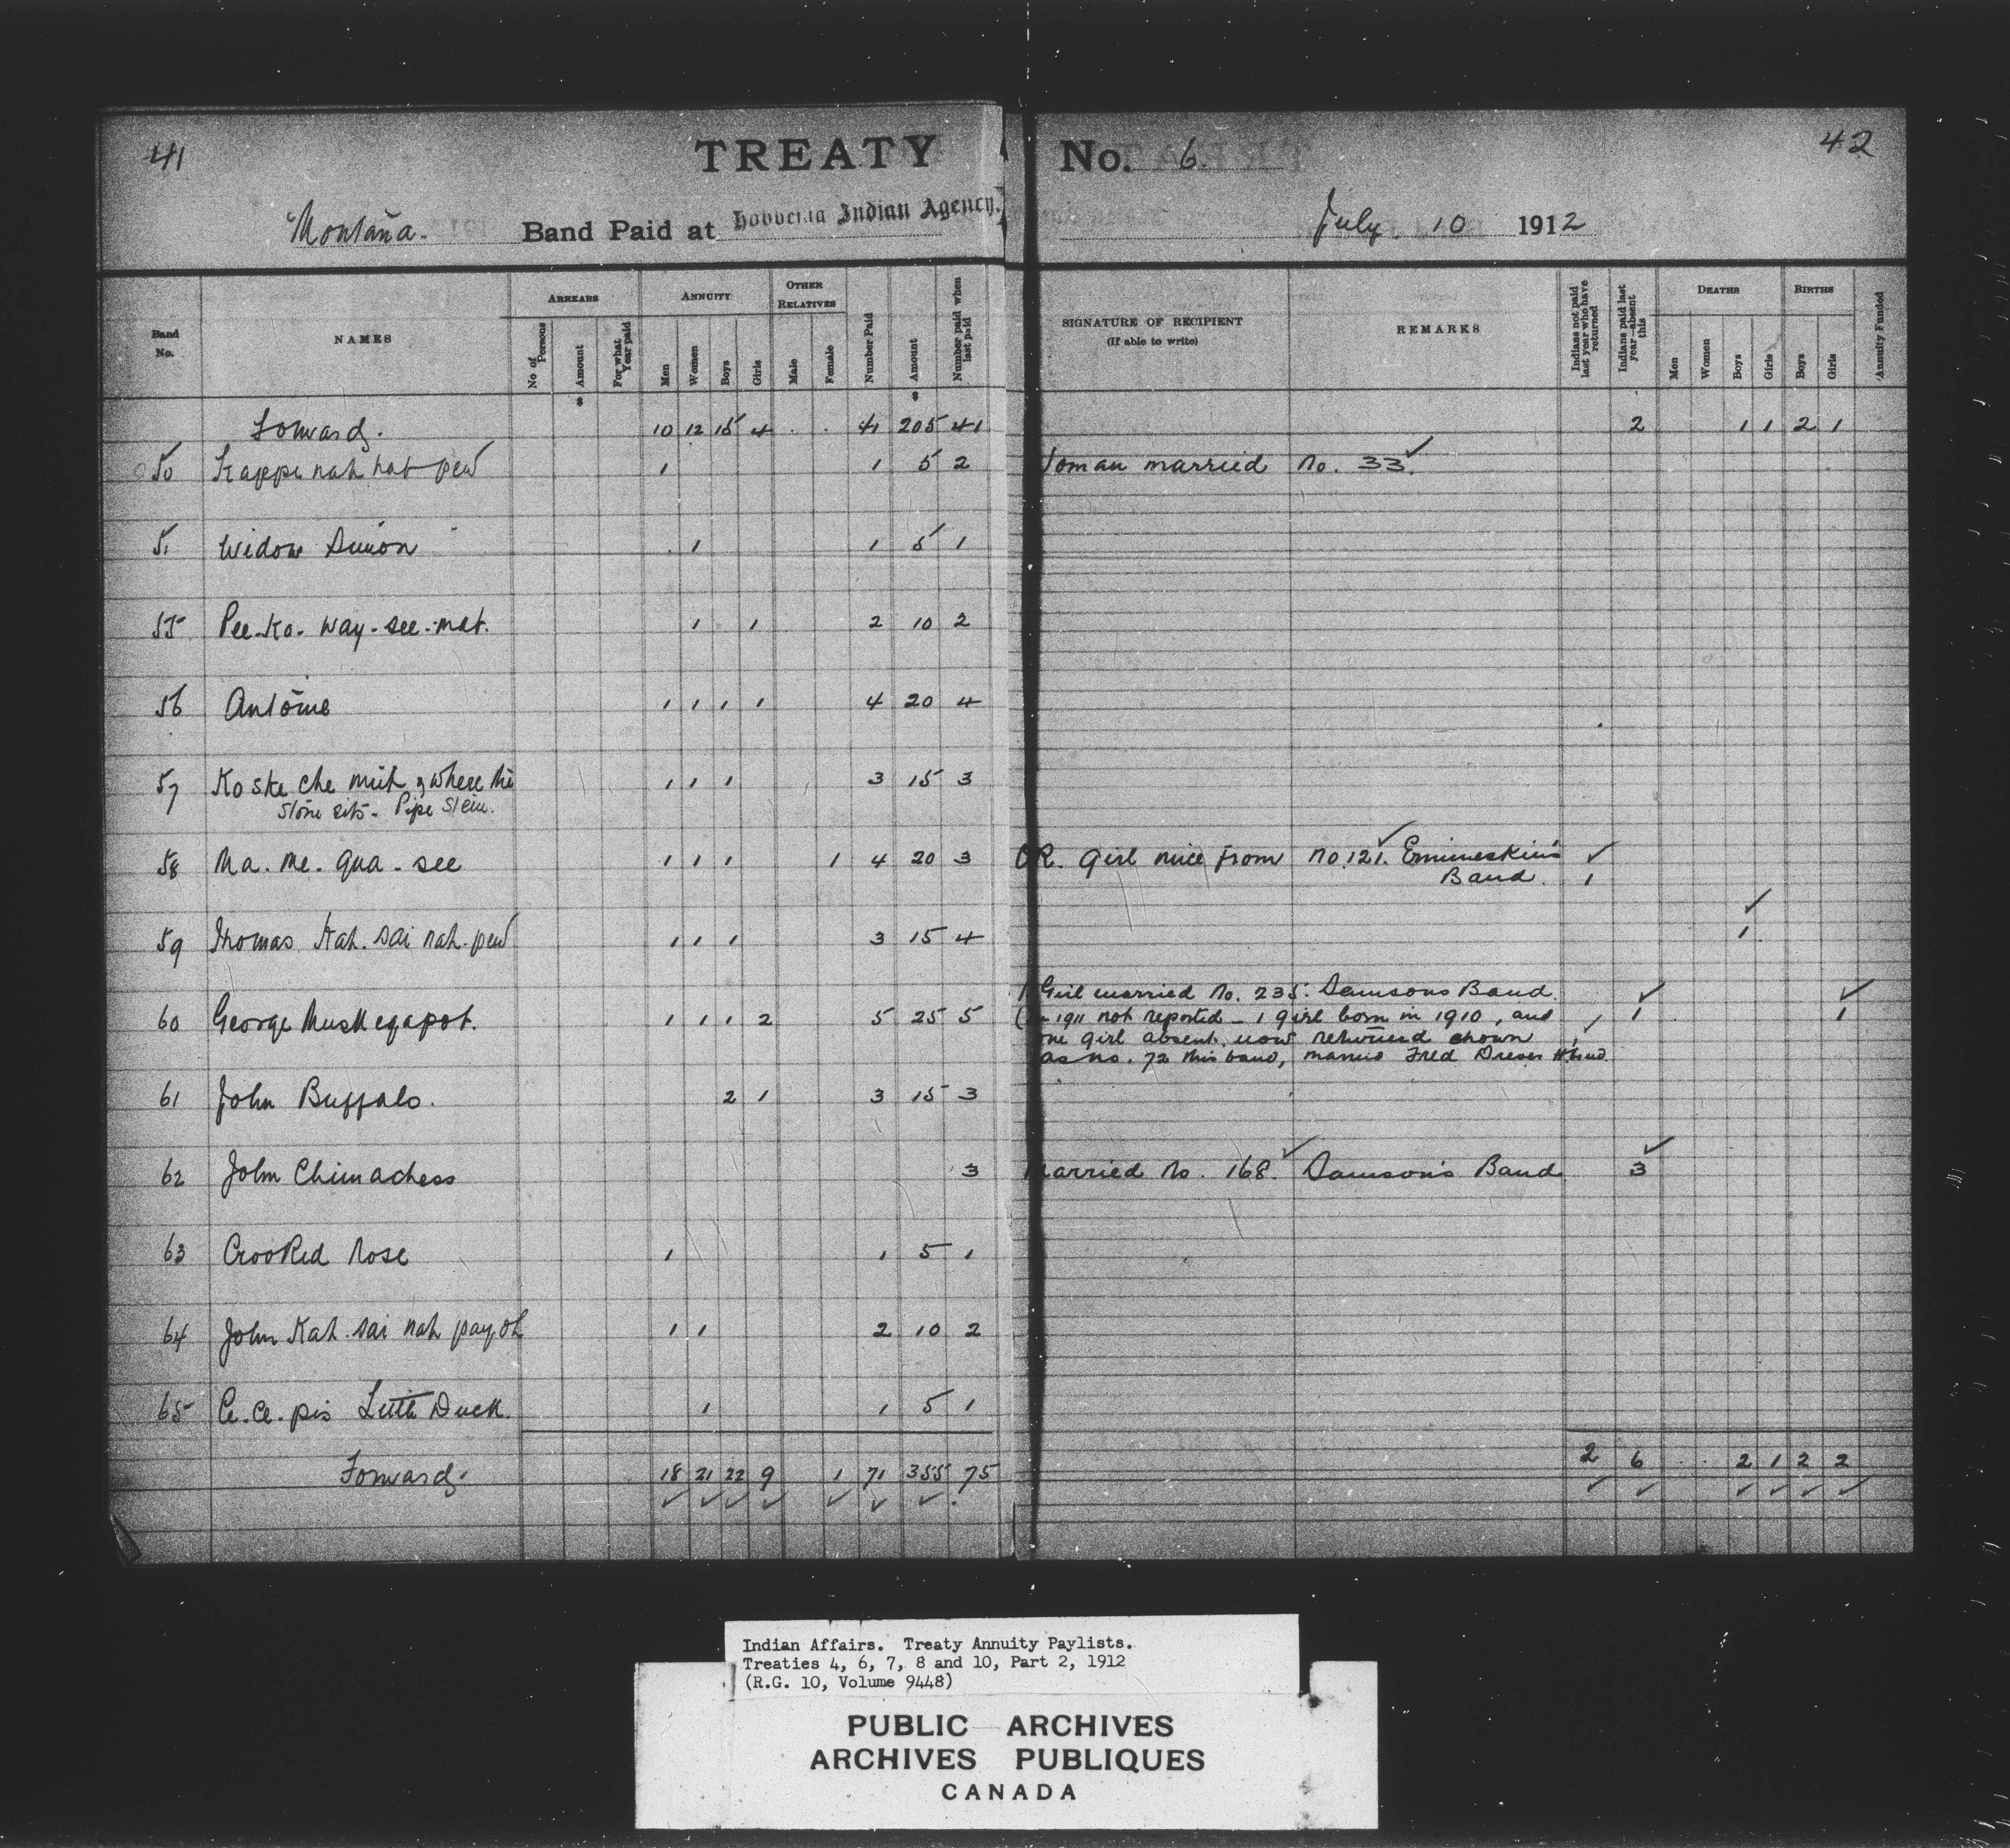 41
TREATY No. 6.
42
Montana. Band Paid at Hobbema Indian Agency. July 10 1912
Band No.
NAMES
ARREARS
No of Persons
Amount
For what Year paid
ANNUITY
Men
Women
Boys
Girls
OTHER RELATIVES
Male
Female
Number Paid
Amount
Number paid when last paid
SIGNATURE OF RECIPIENT
(If able to write)
REMARKS
Indians not paid last year who have returned
Indians paid last year—absent this
DEATHS
Men
Women
Boys
Girls
BIRTHS
Boys
Girls
Annuity Funded
$ $
Forward. 10 12 15 4 . . 41 205 41 2 1 1 2 1
50 Kappe nah hat pew 1 1 5 2 Woman married No. 33.
51 Widow Simon 1 1 5 1
55 Pee-Ko-way-see-mat. 1 1 2 10 2
56 Antoine 1 1 1 1 4 20 4
57 Ko ske che mih, where the 1 1 1 3 15 3
Stone sits - Pipe Stem.
58 Ma. me. qua-see 1 1 1 1 4 20 3 OR. Girl niece from No. 121. Ermineskin's
Band. 1
59 Thomas Kah. sai nah-pew 1 1 1 3 15 4 1
1 Girl married No. 235. Samsons Band.
60 George Muskegapot. 1 1 1 2 5 25 5 (in 1911 not reported - 1 girl born in 1910, and 1 1 1
one girl absent, now returned shown 1
as no. 72 this band, married Fred
61 John Buffalo. 2 1 3 15 3
62 John Chimachess 3 Married No. 168. Samson's Band 3
63 Crooked Nose 1 1 5 1
64 John Kah. sai nah pay oh 1 1 2 10 2
65 Ce. Ce. pis Little Duck. 1 1 5 1
Forward. 18 21 22 9 1 71 355 75 2 6 . . 2 1 2 2
Indian Affairs. Treaty Annuity Paylists.
Treaties 4, 6, 7, 8 and 10, Part 2, 1912
(R.G. 10, Volume 9448)
PUBLIC ARCHIVES
ARCHIVES PUBLIQUES
CANADA